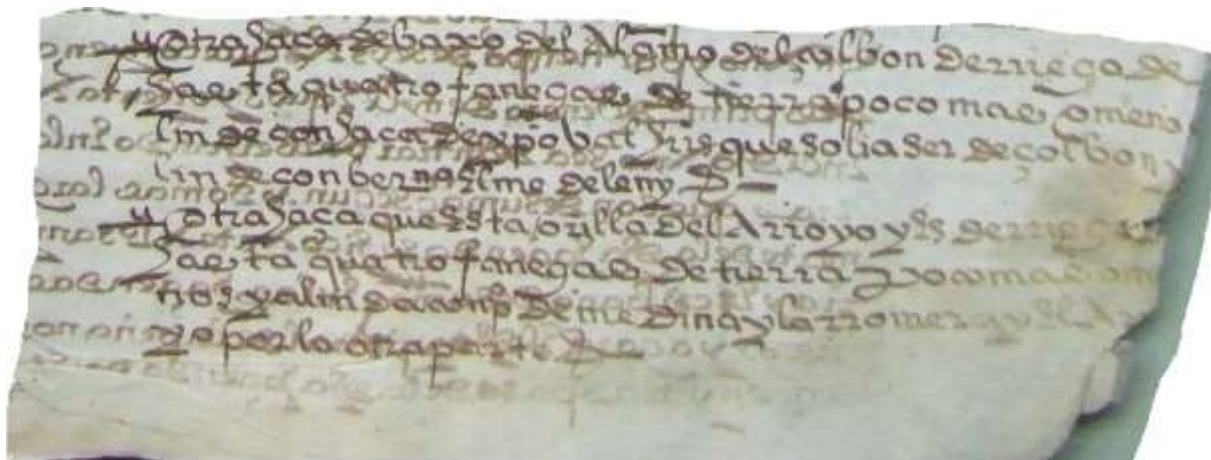 otra haça debaxo del Alamo del çolbon de rriego de
hasta quatro fanegas de tierra poco mas o menos
linde con haca de xpoval que solia ser de çolbon y
linde con
otra haça que esta orilla del Arroyo y es de rriego
hasta quatro fanegas de tierra poco mas o me
nos y alinda con de medina y la rromera y el Arro
yo por la otra parte